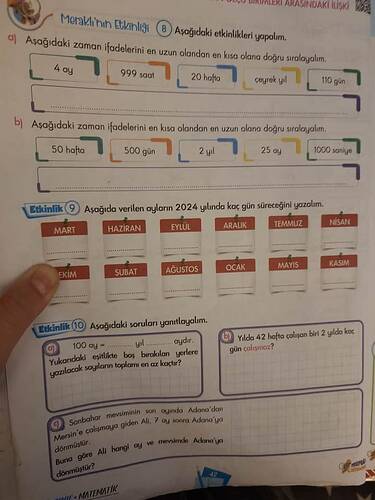 BİRİMLERİ ARASINDAKİ İLİŞKİ
Meraklı'nın Etkinliği 8 Aşağıdaki etkinlikleri yapalım.
a) Aşağıdaki zaman ifadelerini en uzun olandan en kısa olana doğru sıralayalım.
4 ay 999 saat 20 hafta çeyrek yıl 110 gün
b) Aşağıdaki zaman ifadelerini en kısa olandan en uzun olana doğru sıralayalım.
50 hafta 500 gün 2 yıl 25 ay 1000 saniye
Etkinlik 9 Aşağıda verilen ayların 2024 yılında kaç gün süreceğini yazalım.
MART HAZİRAN EYLÜL ARALIK TEMMUZ NİSAN
EKİM ŞUBAT AĞUSTOS OCAK MAYIS KASIM
Etkinlik 10 Aşağıdaki soruları yanıtlayalım.
a) 100 ay = ........ yıl ........ aydır.
Yukarıdaki eşitlikte boş bırakılan yerlere
yazılacak sayıların toplamı en az kaçtır?
b) Yılda 42 hafta çalışan biri 2 yılda kaç
gün çalışmaz?
c) Sonbahar mevsiminin son ayında Adana'dan
Mersin'e çalışmaya giden Ali, 7 ay sonra Adana'ya
dönmüştür.
Buna göre Ali hangi ay ve mevsimde Adana'ya
dönmüştür?
42
MATEMATİK